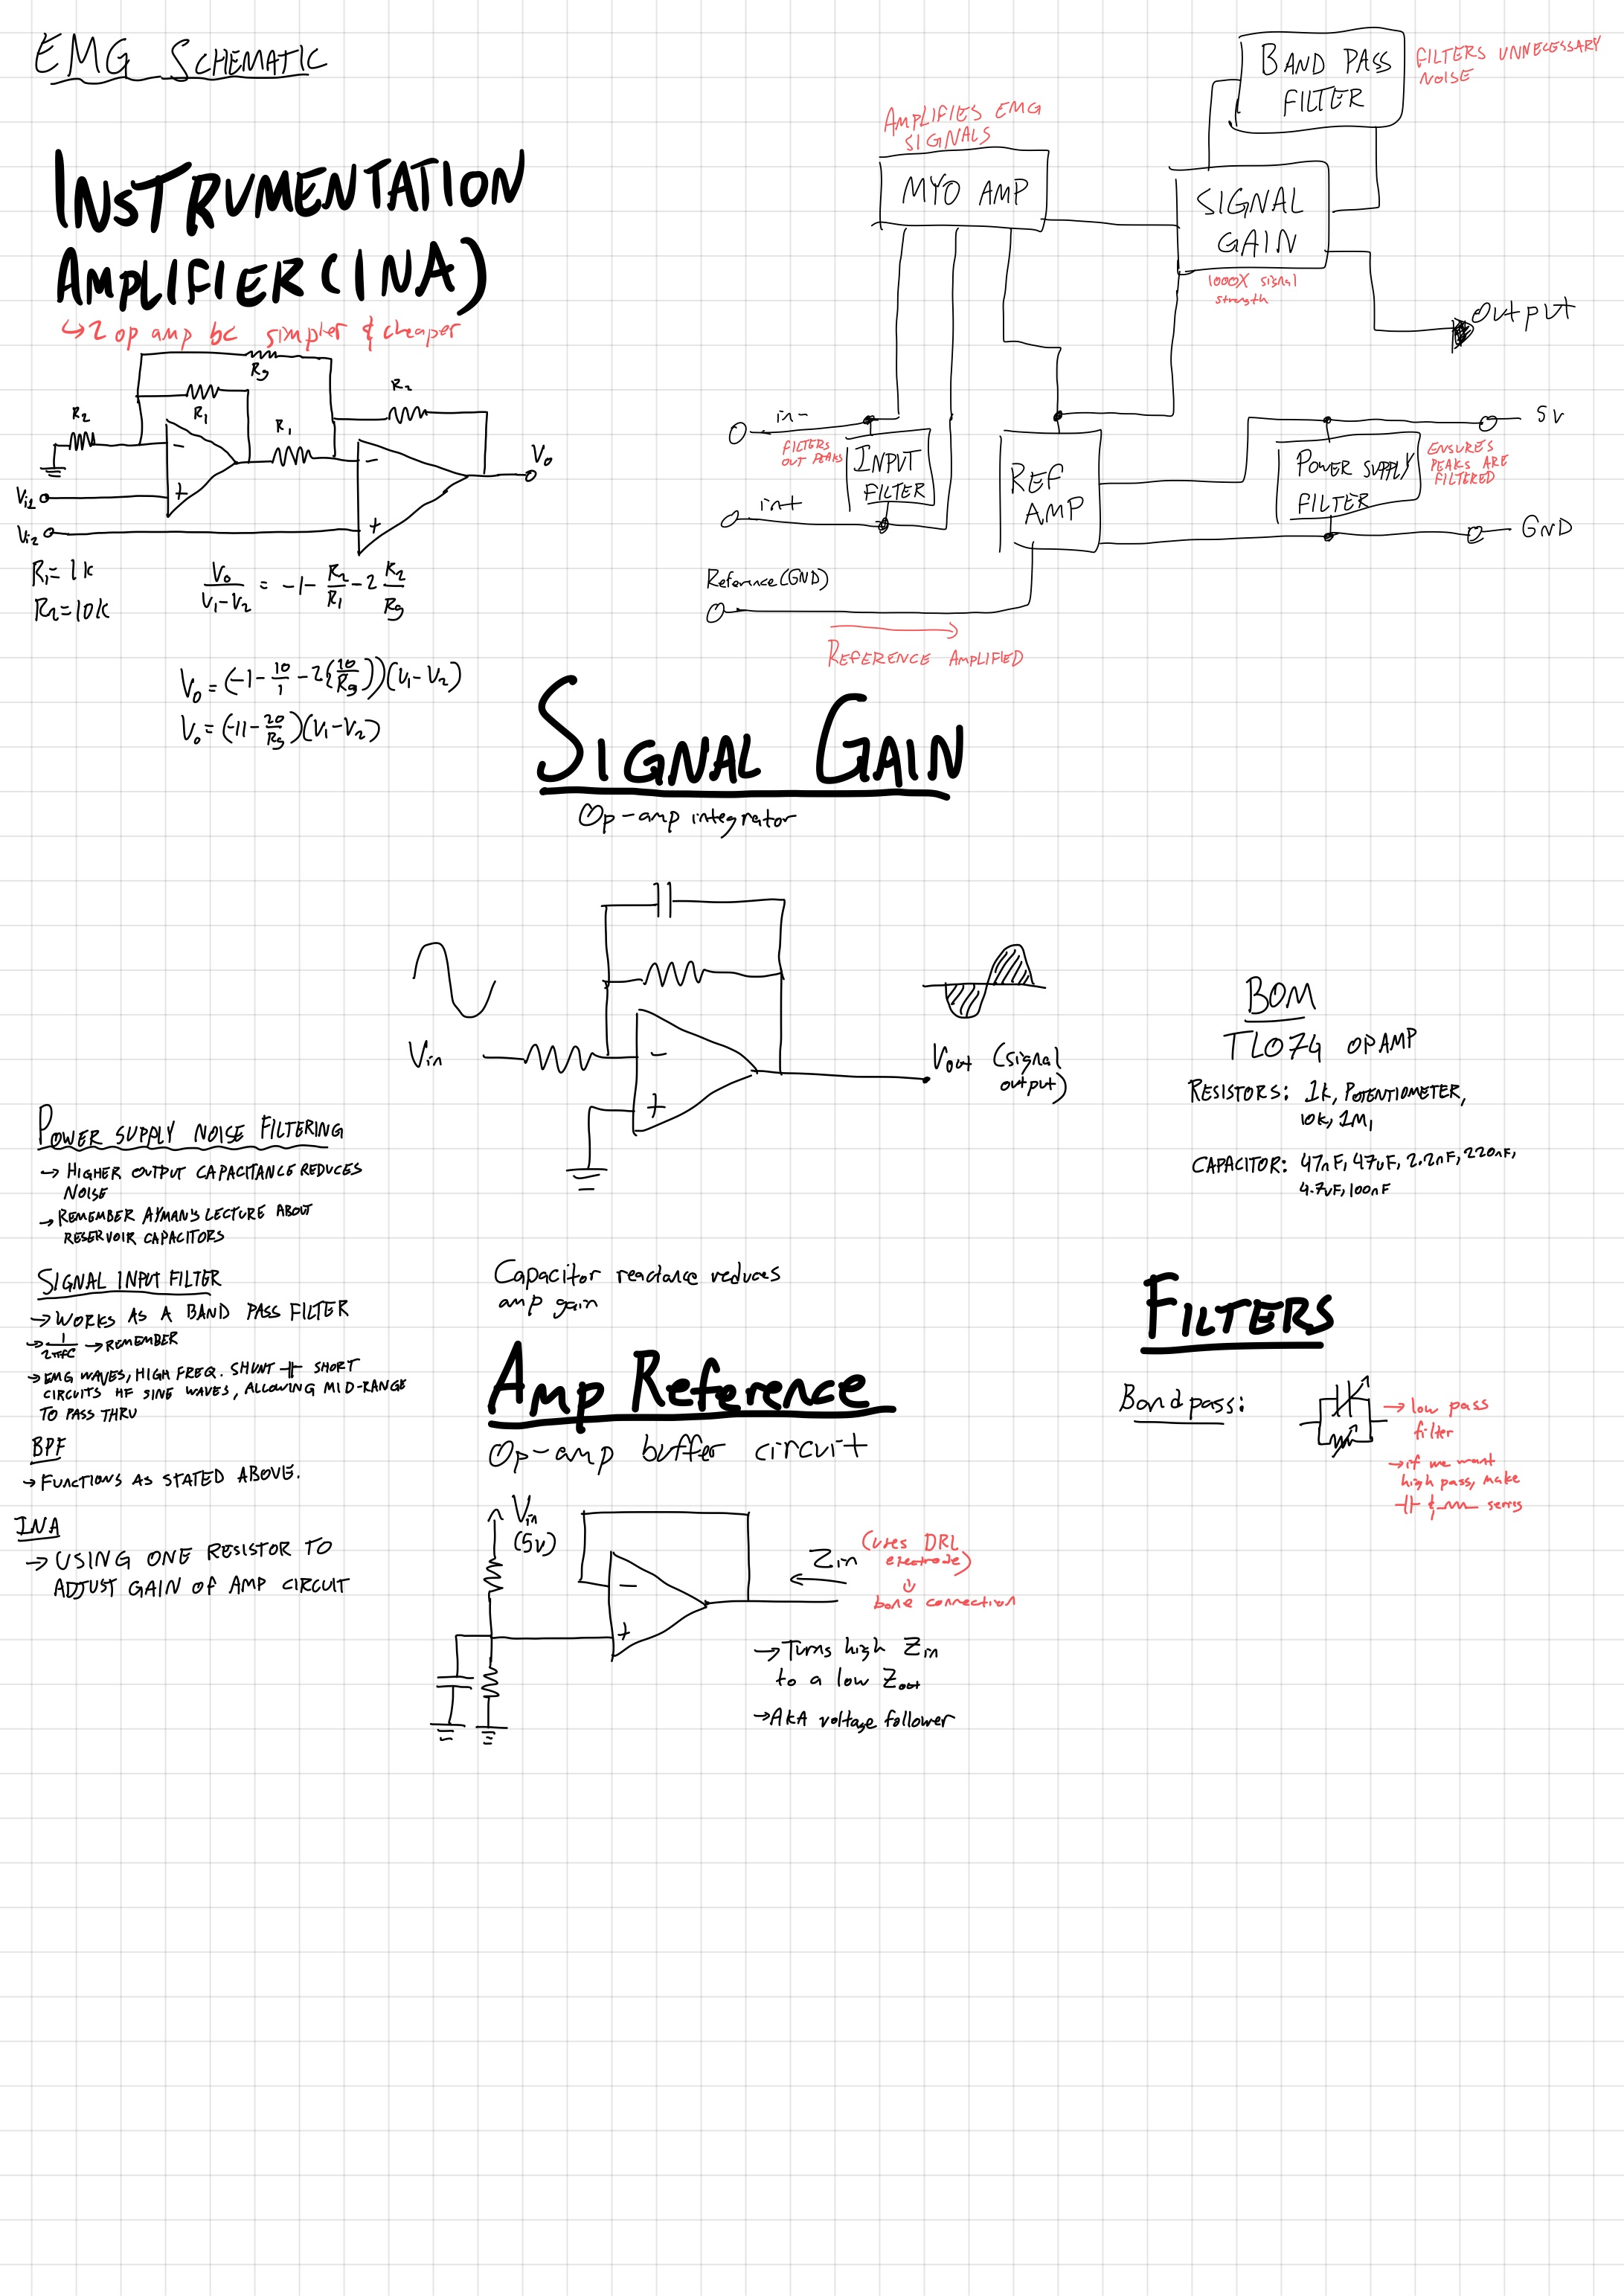 EMG SCHEMATIC
INSTRUMENTATION
AMPLIFIER (INA)
↳ 2 op amp bc simpler & cheaper
Rg
R1
R2
R2
R1
-
+
-
+
Vo
Vi1
Vi2
R1 = 1k
R2 = 10k
Vo/(V1-V2) = -1 - R2/R1 - 2 R2/Rg
Vo = (-1 - 10/1 - 2(10/Rg))(V1-V2)
Vo = (-11 - 20/Rg)(V1-V2)
BAND PASS
FILTER
FILTERS UNNECESSARY
NOISE
AMPLIFIES EMG
SIGNALS
MYO AMP
SIGNAL
GAIN
1000X signal
strength
output
in-
FILTERS
OUT PEAKS
INPUT
FILTER
in+
REF
AMP
5V
POWER SUPPLY
FILTER
ENSURES
PEAKS ARE
FILTERED
GND
Reference (GND)
REFERENCE AMPLIFIED
SIGNAL GAIN
Op-amp integrator
Vin
-
+
Vout (signal
output)
Capacitor reactance reduces
amp gain
BOM
TL074 OPAMP
RESISTORS: 1k, POTENTIOMETER,
10k, 1M,
CAPACITOR: 47nF, 47uF, 2.2nF, 220nF,
4.7uF, 100nF
POWER SUPPLY NOISE FILTERING
→ HIGHER OUTPUT CAPACITANCE REDUCES
NOISE
→ REMEMBER AYMAN'S LECTURE ABOUT
RESERVOIR CAPACITORS
SIGNAL INPUT FILTER
→ WORKS AS A BAND PASS FILTER
→ 1/2πfC → REMEMBER
→ EMG WAVES, HIGH FREQ. SHUNT ⊣⊢ SHORT
CIRCUITS HF SINE WAVES, ALLOWING MID-RANGE
TO PASS THRU
BPF
→ FUNCTIONS AS STATED ABOVE.
INA
→ USING ONE RESISTOR TO
ADJUST GAIN OF AMP CIRCUIT
Amp Reference
Op-amp buffer circuit
Vin
(5v)
-
+
Zin
(uses DRL
electrode)
bone connection
→ Turns high Zin
to a low Zout
→ AKA voltage follower
FILTERS
Bandpass:
→ low pass
filter
→ if we want
high pass, make
⊣⊢ & series